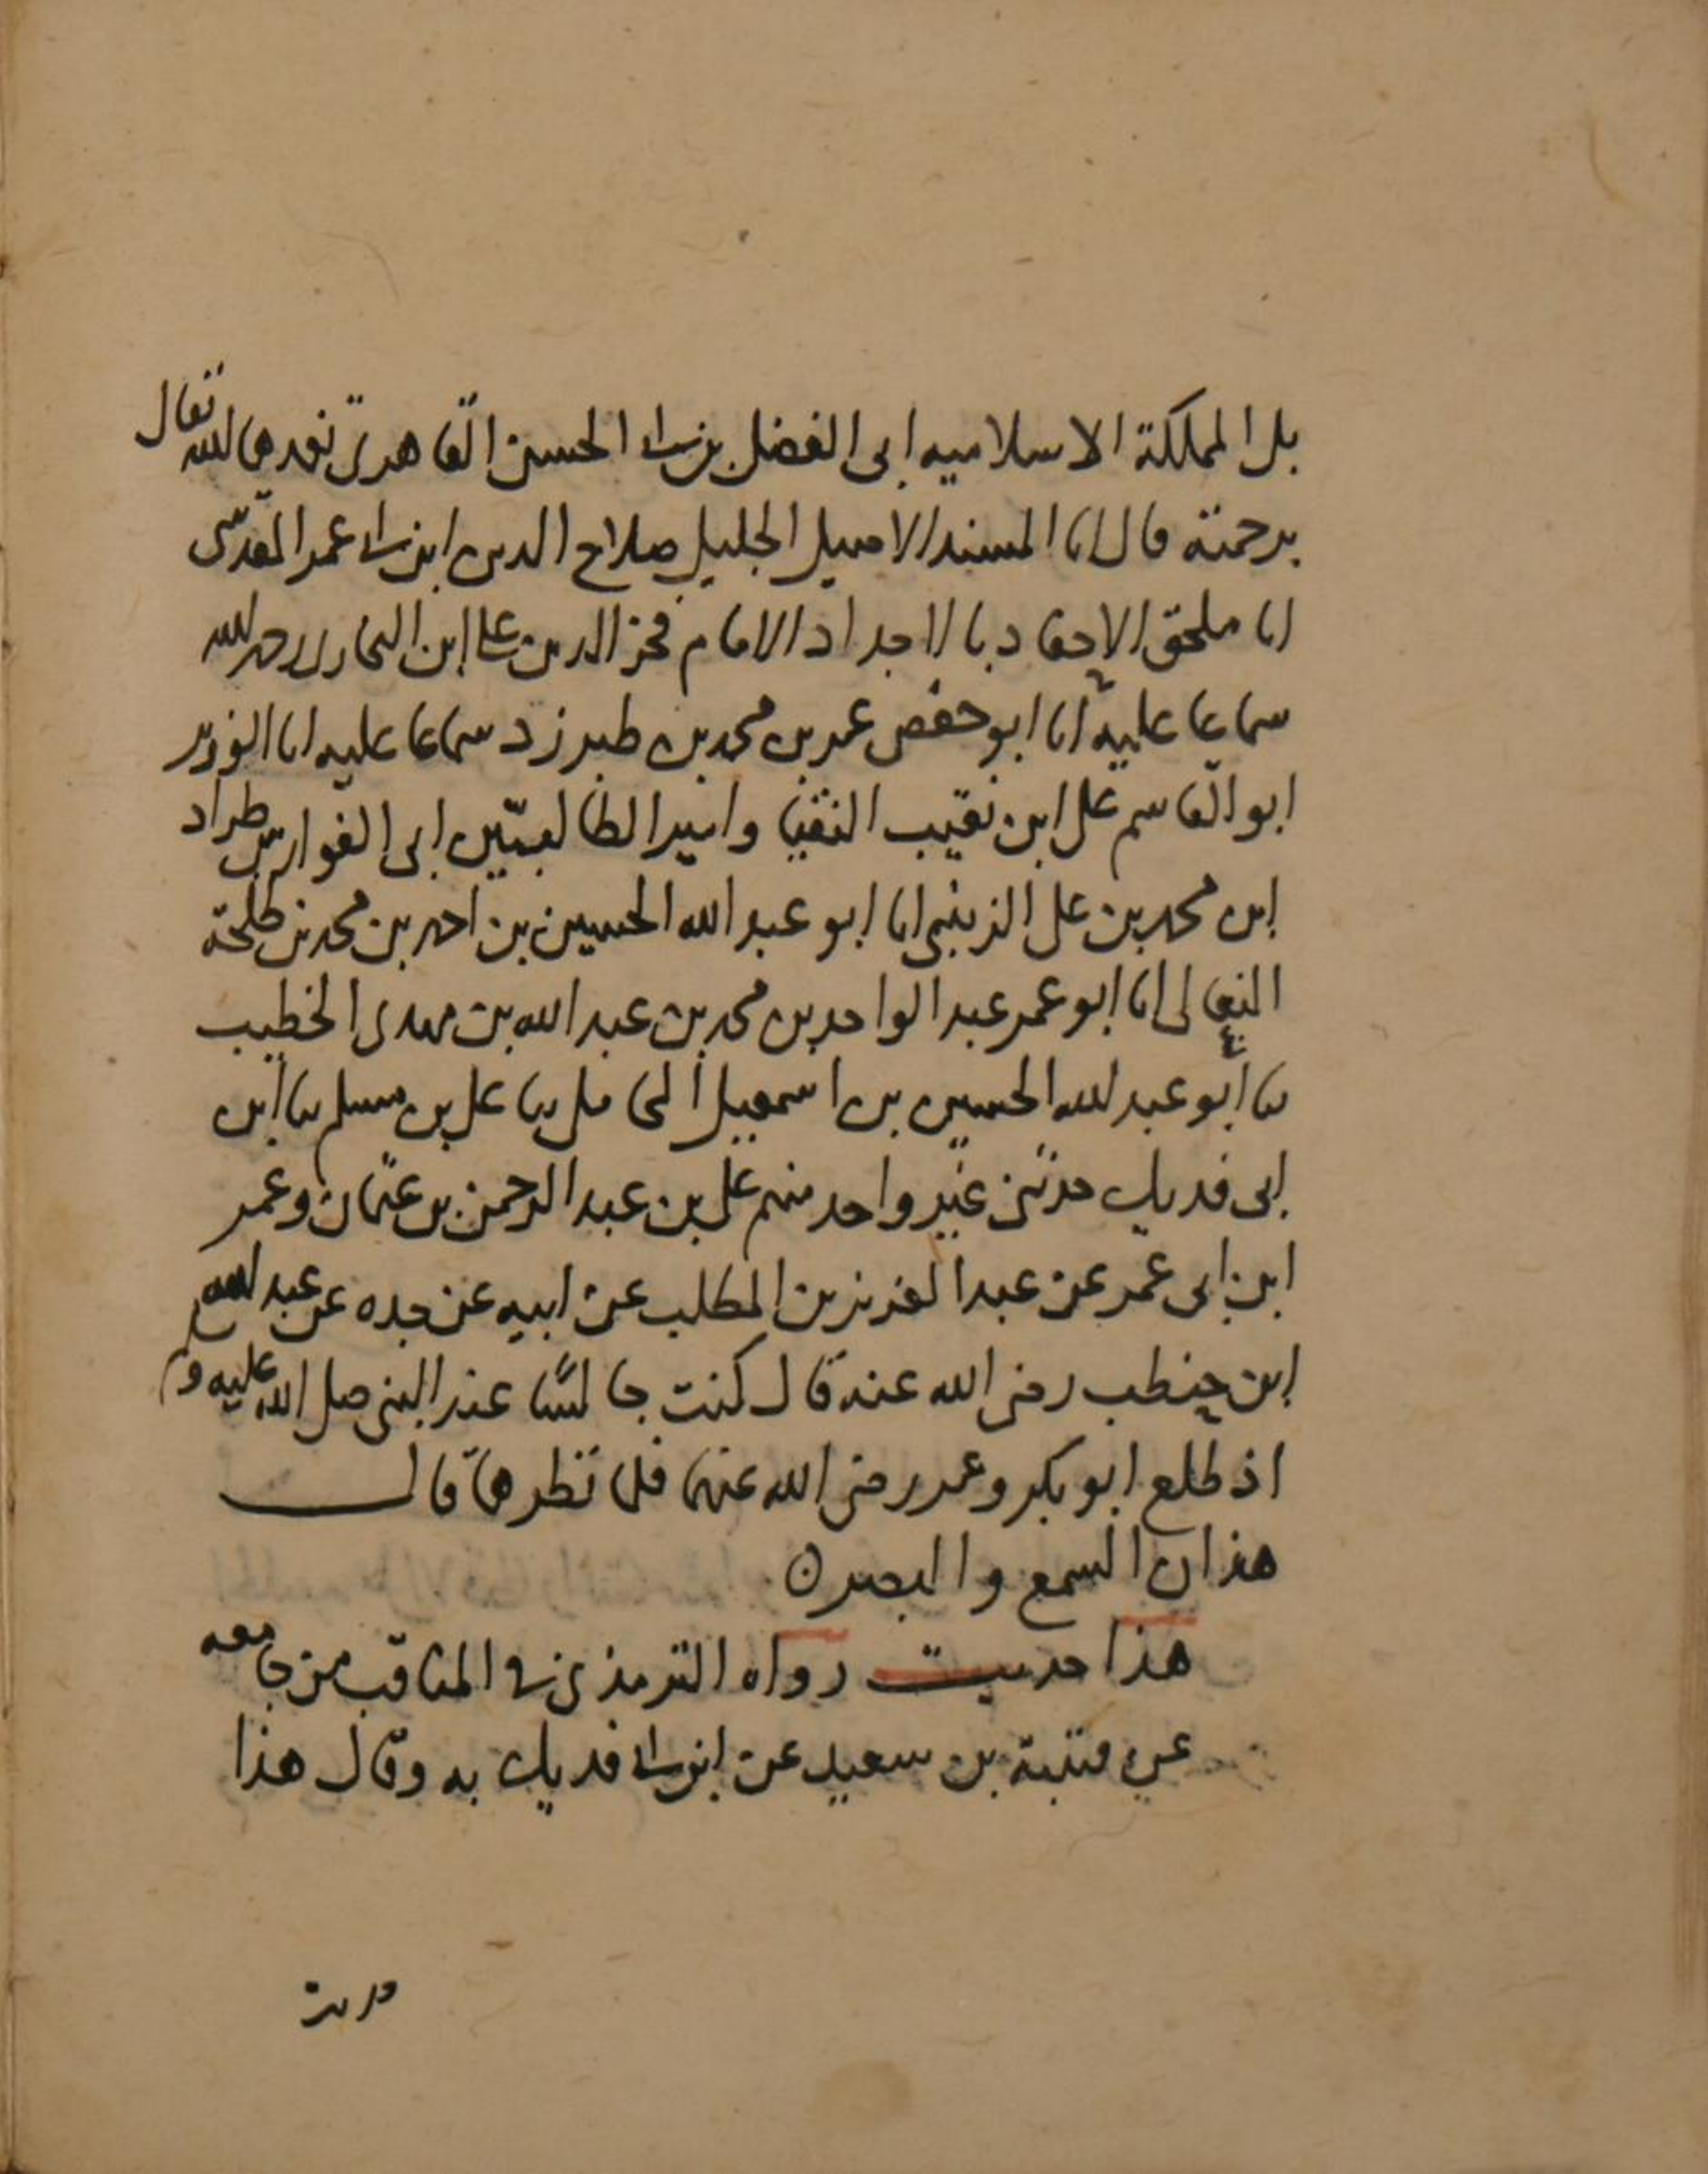 بل المملكة الاسلاميه ابى الفضل بن ابى الحسن القاهرى تغمدها الله تعالى
برحمته قال انا المسند الاصيل الجليل صلاح الدين ابن ابى عمر المقدسى
انا ملحق الاحفاد بالاجداد الامام فخر الدين على ابن البخارى رحمه الله
سماعا عليه انا ابو حفص عمر بن محمد بن طبرزد سماعا عليه انا الوزير
ابو القاسم على ابن نقيب النقبا وامير الطالبيين ابى الفوارس طراد
ابن محمد بن على الزينبى انا ابو عبد الله الحسين بن احمد بن محمد بن طلحة
النعالى انا ابو عمر عبد الواحد بن محمد بن عبد الله بن مهدى الخطيب
ثنا ابو عبد الله الحسين بن اسمعيل المحاملى ثنا على بن مسلم ثنا ابن
ابى فديك حدثنى غير واحد منهم على بن عبد الرحمن بن عثمان وعمر
ابن ابى عمر عن عبد العزيز بن المطلب عن ابيه عن جده عن عبد الله
ابن حنطب رضى الله عنه قال كنت جالسًا عند النبى صلى الله عليه وسلم
اذ طلع ابو بكر وعمر رضى الله عنهما فلما نظرهما قال
هذان السمع والبصر ن
هذا حديث رواه الترمذى فى المناقب من جامعه
عن قتيبة بن سعيد عن ابن ابى فديك به وقال هذا
حديث